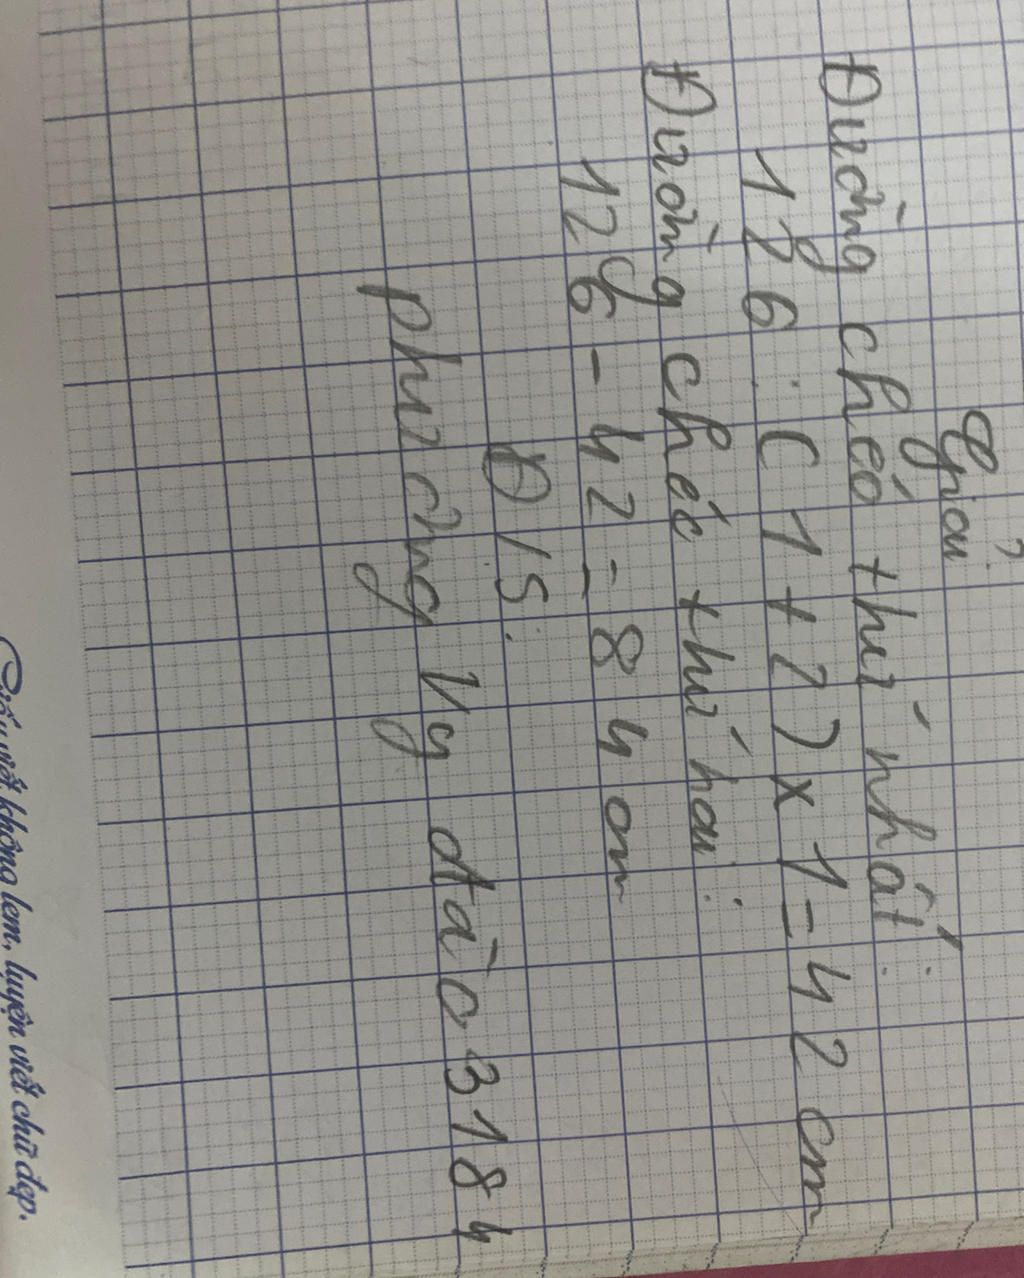 Giải
Đường chéo thứ nhất:
126 : ( 1 + 2 ) x 1 = 42 cm
Đường chéo thứ hai:
126 - 42 = 84 cm
Đ/S:
phương vy đào 3184
Giấy viết không lem, luyện viết chữ đẹp.